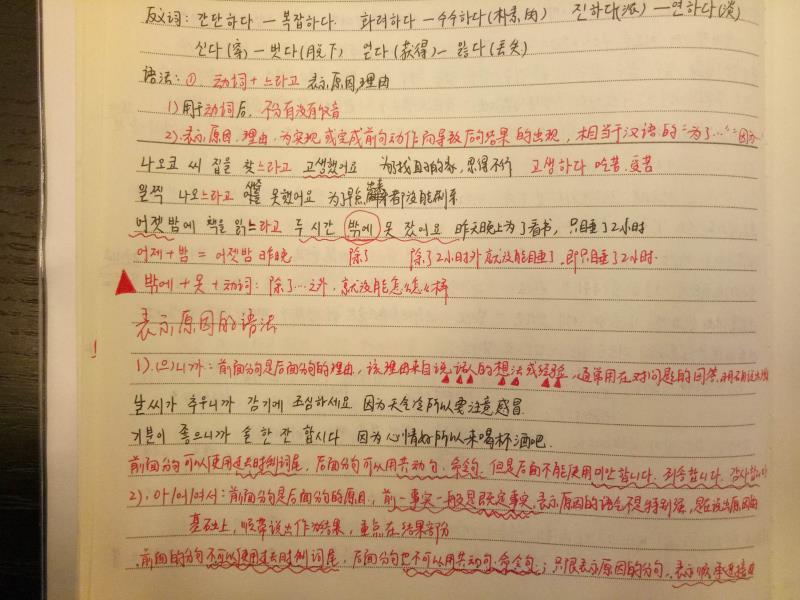 反义词: 간단하다 — 복잡하다. 화려하다 — 수수하다(朴素的) 진하다(浓) — 연하다(淡)
신다(穿) — 벗다(脱下) 얻다(获得) — 잃다(丢失)
语法: ① 动词+느라고 表示原因,理由
1) 用于动词后, 不分有没有收音
2). 表示原因、理由. 为实现或完成前句动作而导致后句结果的出现, 相当于汉语的"为了…""因为
나오코 씨 집을 찾느라고 고생했어요 为了找直子的家, 累得不行 고생하다 吃苦. 受苦
일찍 나오느라고 못 했어요 为了早点 都没能刷牙
어젯밤에 책을 읽느라고 두 시간 밖에 못 잤어요 昨天晚上为了看书, 只睡了2小时
어제+밤 = 어젯밤 昨晚 除了 除了2小时外就没能睡了. 即只睡了2小时.
밖에+못+动词: 除了…之外, 就没能怎么怎么样
表示原因的语法
! 1). (으)니까: 前面分句是后面分句的理由, 该理由来自说话人的想法或经验, 通常用在对问题的回答.
날씨가 추우니까 감기에 조심하세요 因为天气冷所以要注意感冒.
기분이 좋으니까 술 한 잔 합시다 因为心情好所以来喝杯酒吧.
前面分句可以使用过去时制词尾, 后面分句可以用共动句、命令句, 但是后面不能使用미안합니다. 죄송합니다. 감사합니다
2). 아/어/여서: 前面分句是后面分句的原因, 前一事实一般是既定事实, 表示原因的语气不是特别强, 是在说出原因的
基础上, 顺带说出作为结果, 重点在结果部分
前面的分句不可以使用过去时制词尾, 后面分句也不可以用共动句、命令句; 只限表示原因的分句. 表示顺承连接